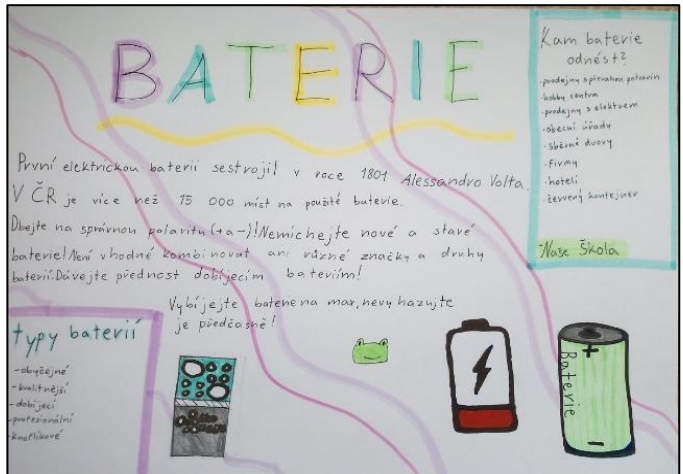 BATERIE
Kam baterie
odnést?
-prodejny s převahou potravin
-hobby centra
-prodejny s elektrem
-obecní úřady
-sběrné dvory
-firmy
-hoteli
-červený kontejner
Naše škola
První elektrickou baterii sestrojil v roce 1801 Alessandro Volta.
V ČR je více než 15 000 míst na použité baterie.
Dbejte na správnou polaritu (+ a -)! Nemíchejte nové a staré
baterie! Není vhodné kombinovat ani různé značky a druhy
baterií. Dávejte přednost dobíjecím bateriím!
Vybíjejte baterie na max, nevyhazujte
je předčasně!
typy baterií
-obyčejné
-kvalitnější
-dobíjecí
-profesionální
-knoflíkové
+
Baterie
-